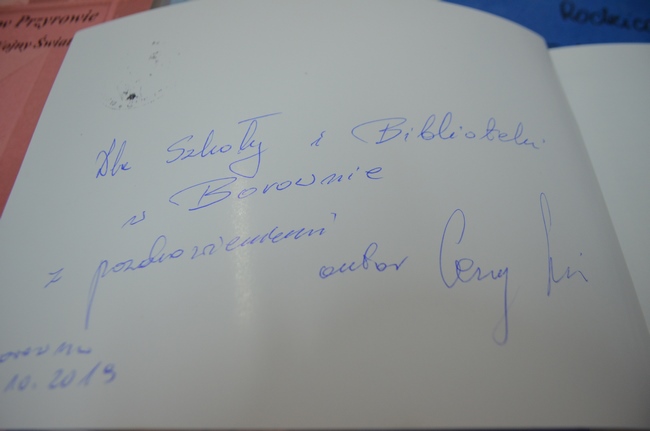 w Przyrowie
Wojny Świat
Rodzice
Dla Szkoły i Biblioteki
w Borownie
z pozdrowieniami
autor Cezary
10.2019